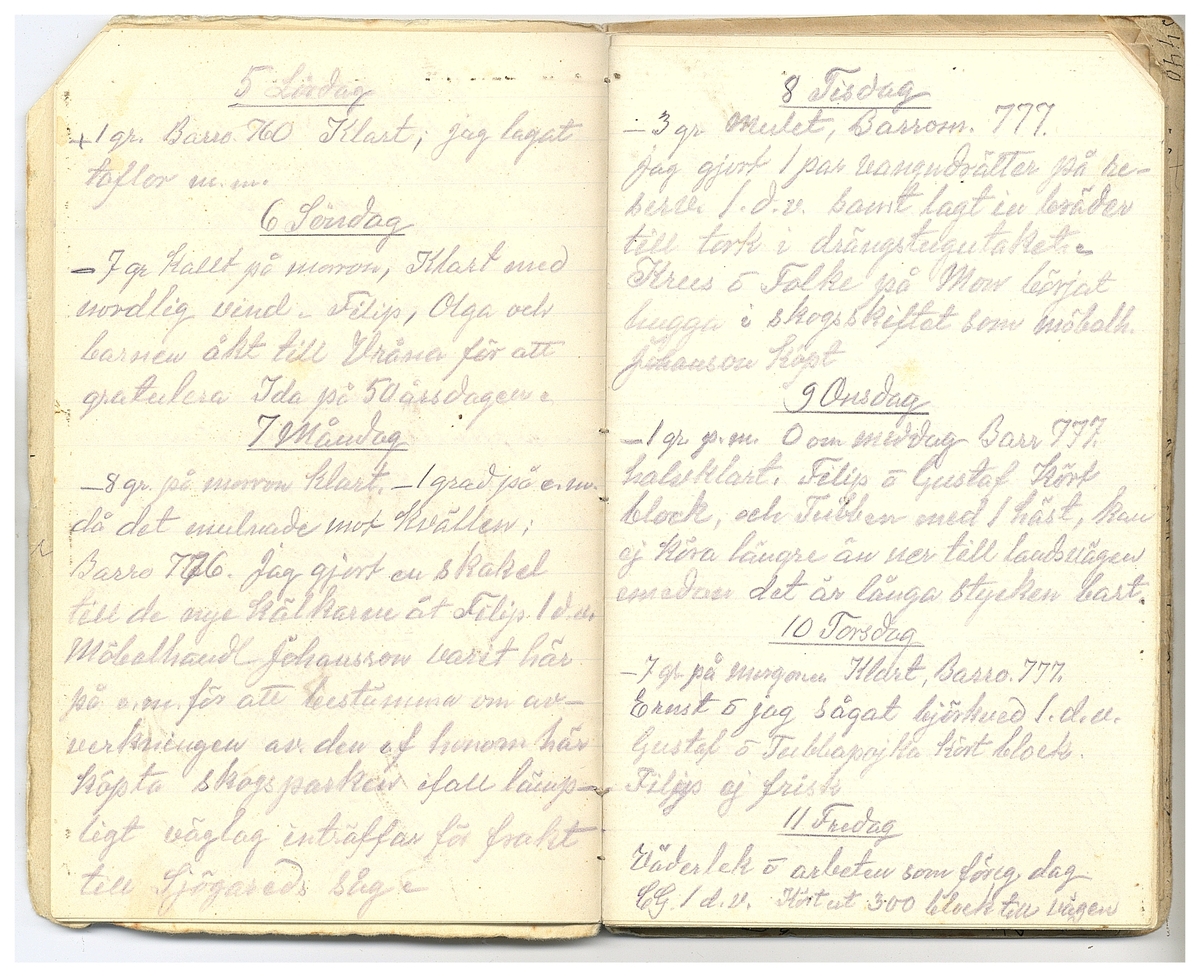 5 Lördag
+1 gr. Barro. 760 Klart, jag lagat
taflor m.m.
6 Söndag
-7 gr kallt på morron, Klart med
nordlig vind. Filip, Olga och
barnen åkt till Vråna för att
gratulera Ida på 50 årsdagen.
7 Måndag
-8 gr. på morron klart. -1 grad på e.m.
då det mulnade mot kvällen;
Barro 776. Jag gjort en skakel
till de nye kälkarne åt Filip. 1 d.v.
Möbalhandl Johansson varit här
på e.m. för att bestämma om av-
verkningen av den af honom här
köpta skogsparken ifall lämp-
ligt väglag inträffar för frakt
till Sjögareds såg.
8 Tisdag
-3 gr Mulet, Barrom. 777.
jag gjort 1 par vangndrätter på re-
serv. 1. d.v. samt lagt in bräder
till tork i drängstugutaket.
Krus ō Folke på Mon börjat
hugga i skogsskiftet som möbalh.
Johanson köpt
9 Onsdag
-1 gr p.m. 0 om middag Barr 777.
halvklart. Filip ō Gustaf Kört
block, och Tubben med 1 häst, kan
ej köra längre än ner till landsvägen
emedan det är långa stycken bart.
10 Torsdag
-7 gr på morgonen Klart, Barro. 777.
Ernst ō jag sågat björkved 1. d.v.
Gustaf ō Tubbapojka kört block.
Filip ej frisk
11 Fredag
Väderlek ō arbeten som föreg. dag
1 d.v. Kört ut 300 block till vägen
5440